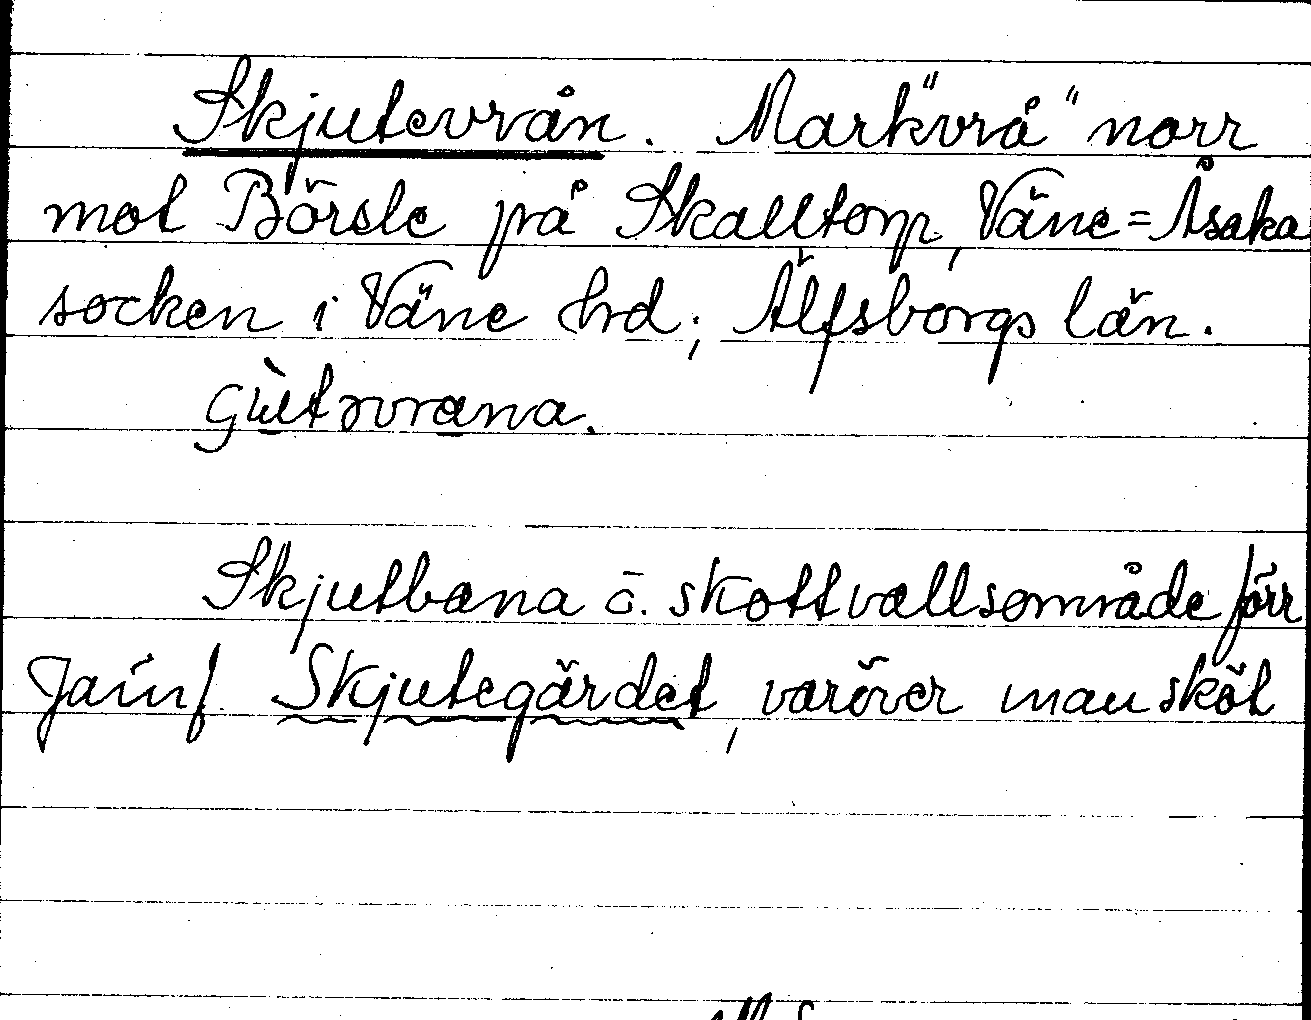 Skjutevrån. Mark"vrå" norr
mot Börsle på Skalltorp, Väne=Åsaka
socken i Väne hrd; Älfsborgs län.
Skjutbana o. skottvallsområde förr
Jämf. Skjutegärdet, varöver man sköt